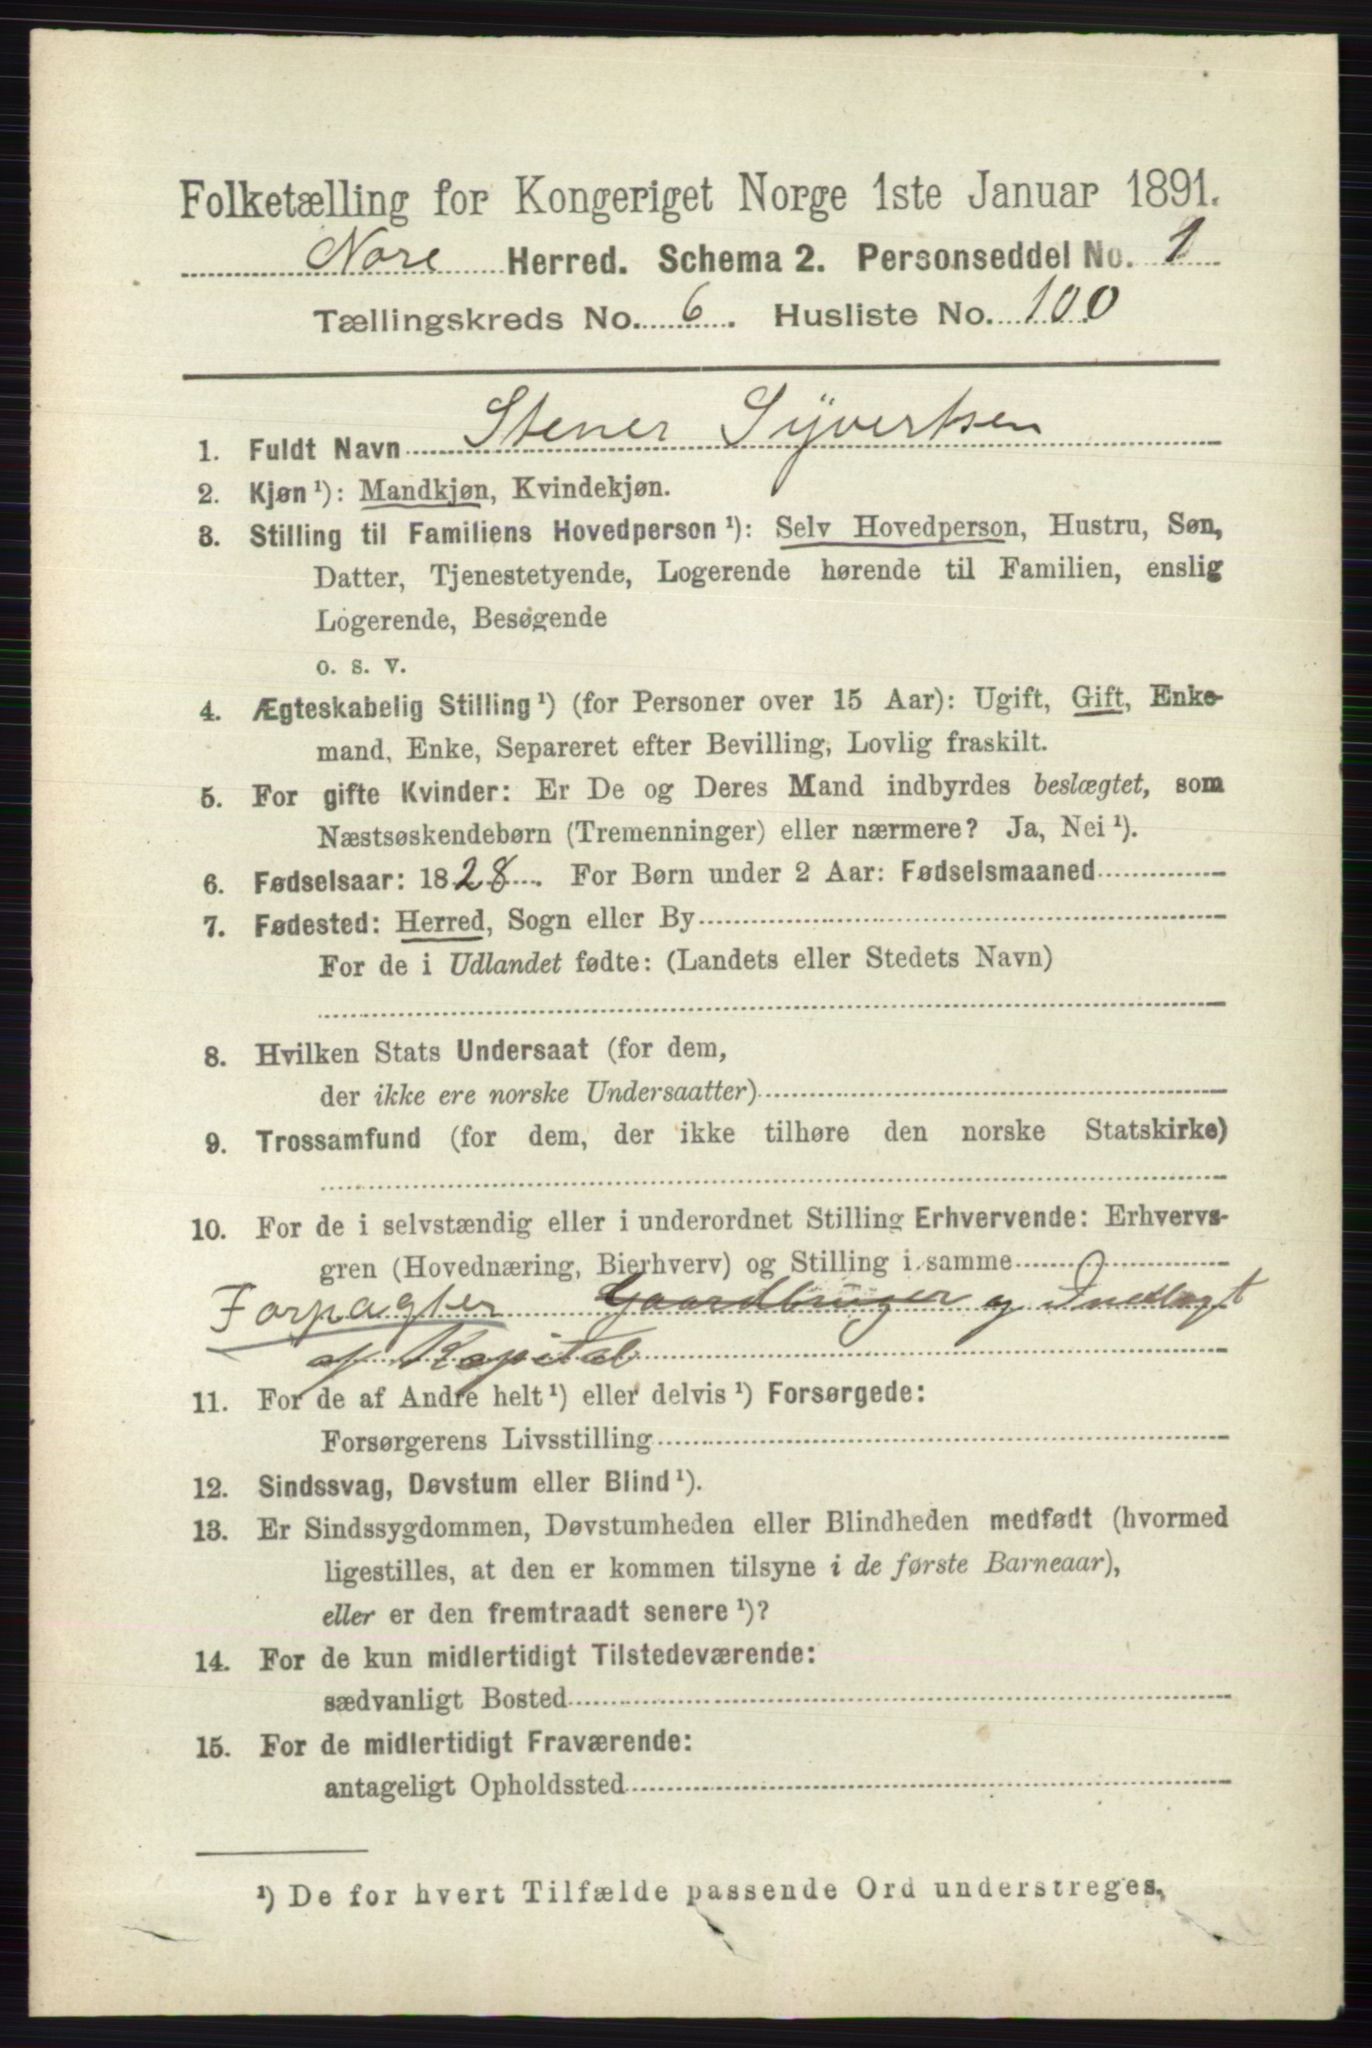 Folketælling for Kongeriget Norge 1ste Januar 1891.
Nore Herred. Schema 2. Personseddel No. 1
Tællingskreds No. 6. Husliste No. 100
1. Fuldt Navn Stener Syvertsen
2. Kjøn¹): Mandkjøn, Kvindekjøn.
3. Stilling til Familiens Hovedperson¹): Selv Hovedperson, Hustru, Søn,
Datter, Tjenestetyende, Logerende hørende til Familien, enslig
Logerende, Besøgende
o. s. v.
4. Ægteskabelig Stilling¹) (for Personer over 15 Aar): Ugift, Gift, Enke-
mand, Enke, Separeret efter Bevilling, Lovlig fraskilt.
5. For gifte Kvinder: Er De og Deres Mand indbyrdes beslægtet, som
Næstsøskendebørn (Tremenninger) eller nærmere? Ja, Nei¹).
6. Fødselsaar: 1828. For Børn under 2 Aar: Fødselsmaaned
7. Fødested: Herred, Sogn eller By
For de i Udlandet fødte: (Landets eller Stedets Navn)
8. Hvilken Stats Undersaat (for dem,
der ikke ere norske Undersaatter)
9. Trossamfund (for dem, der ikke tilhøre den norske Statskirke)
10. For de i selvstændig eller i underordnet Stilling Erhvervende: Erhvervs-
gren (Hovednæring, Bierhverv) og Stilling i samme
Forpagter Gaardbruger og Indtægt
af Kapital
11. For de af Andre helt¹) eller delvis¹) Forsørgede:
Forsørgerens Livsstilling
12. Sindssvag, Døvstum eller Blind¹).
13. Er Sindssygdommen, Døvstumheden eller Blindheden medfødt (hvormed
ligestilles, at den er kommen tilsyne i de første Barneaar),
eller er den fremtraadt senere¹)?
14. For de kun midlertidigt Tilstedeværende:
sædvanligt Bosted
15. For de midlertidigt Fraværende:
antageligt Opholdssted
¹) De for hvert Tilfælde passende Ord understreges.